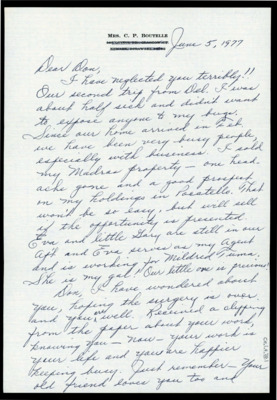 MRS. C. P. BOUTELLE
June 5, 1977
Dear Don,
I have neglected you terribly!!
Our second trip from Del. I was
about half sick and didn't want
to expose anyone to my bugs.
Since our home arrived in Feb.
we have been very busy people,
especially with business. I sold
my Madras property — one head-
ache gone and a good prospect
on my holdings in Pocatello. That
won't be so easy, but will sell
if the opportunity is presented
Eva and little Story are still in our
Apt and Eva serves as my Agent
and is working for Mildred
She is my gal! Our little one is precious!
Don, I have wondered about
you, hoping the surgery is over
and you're well. Received a clipping
from the paper about your work,
knowing you — now — your work is
your life and you are happier
keeping busy. Just remember — your
old friend loves you too and